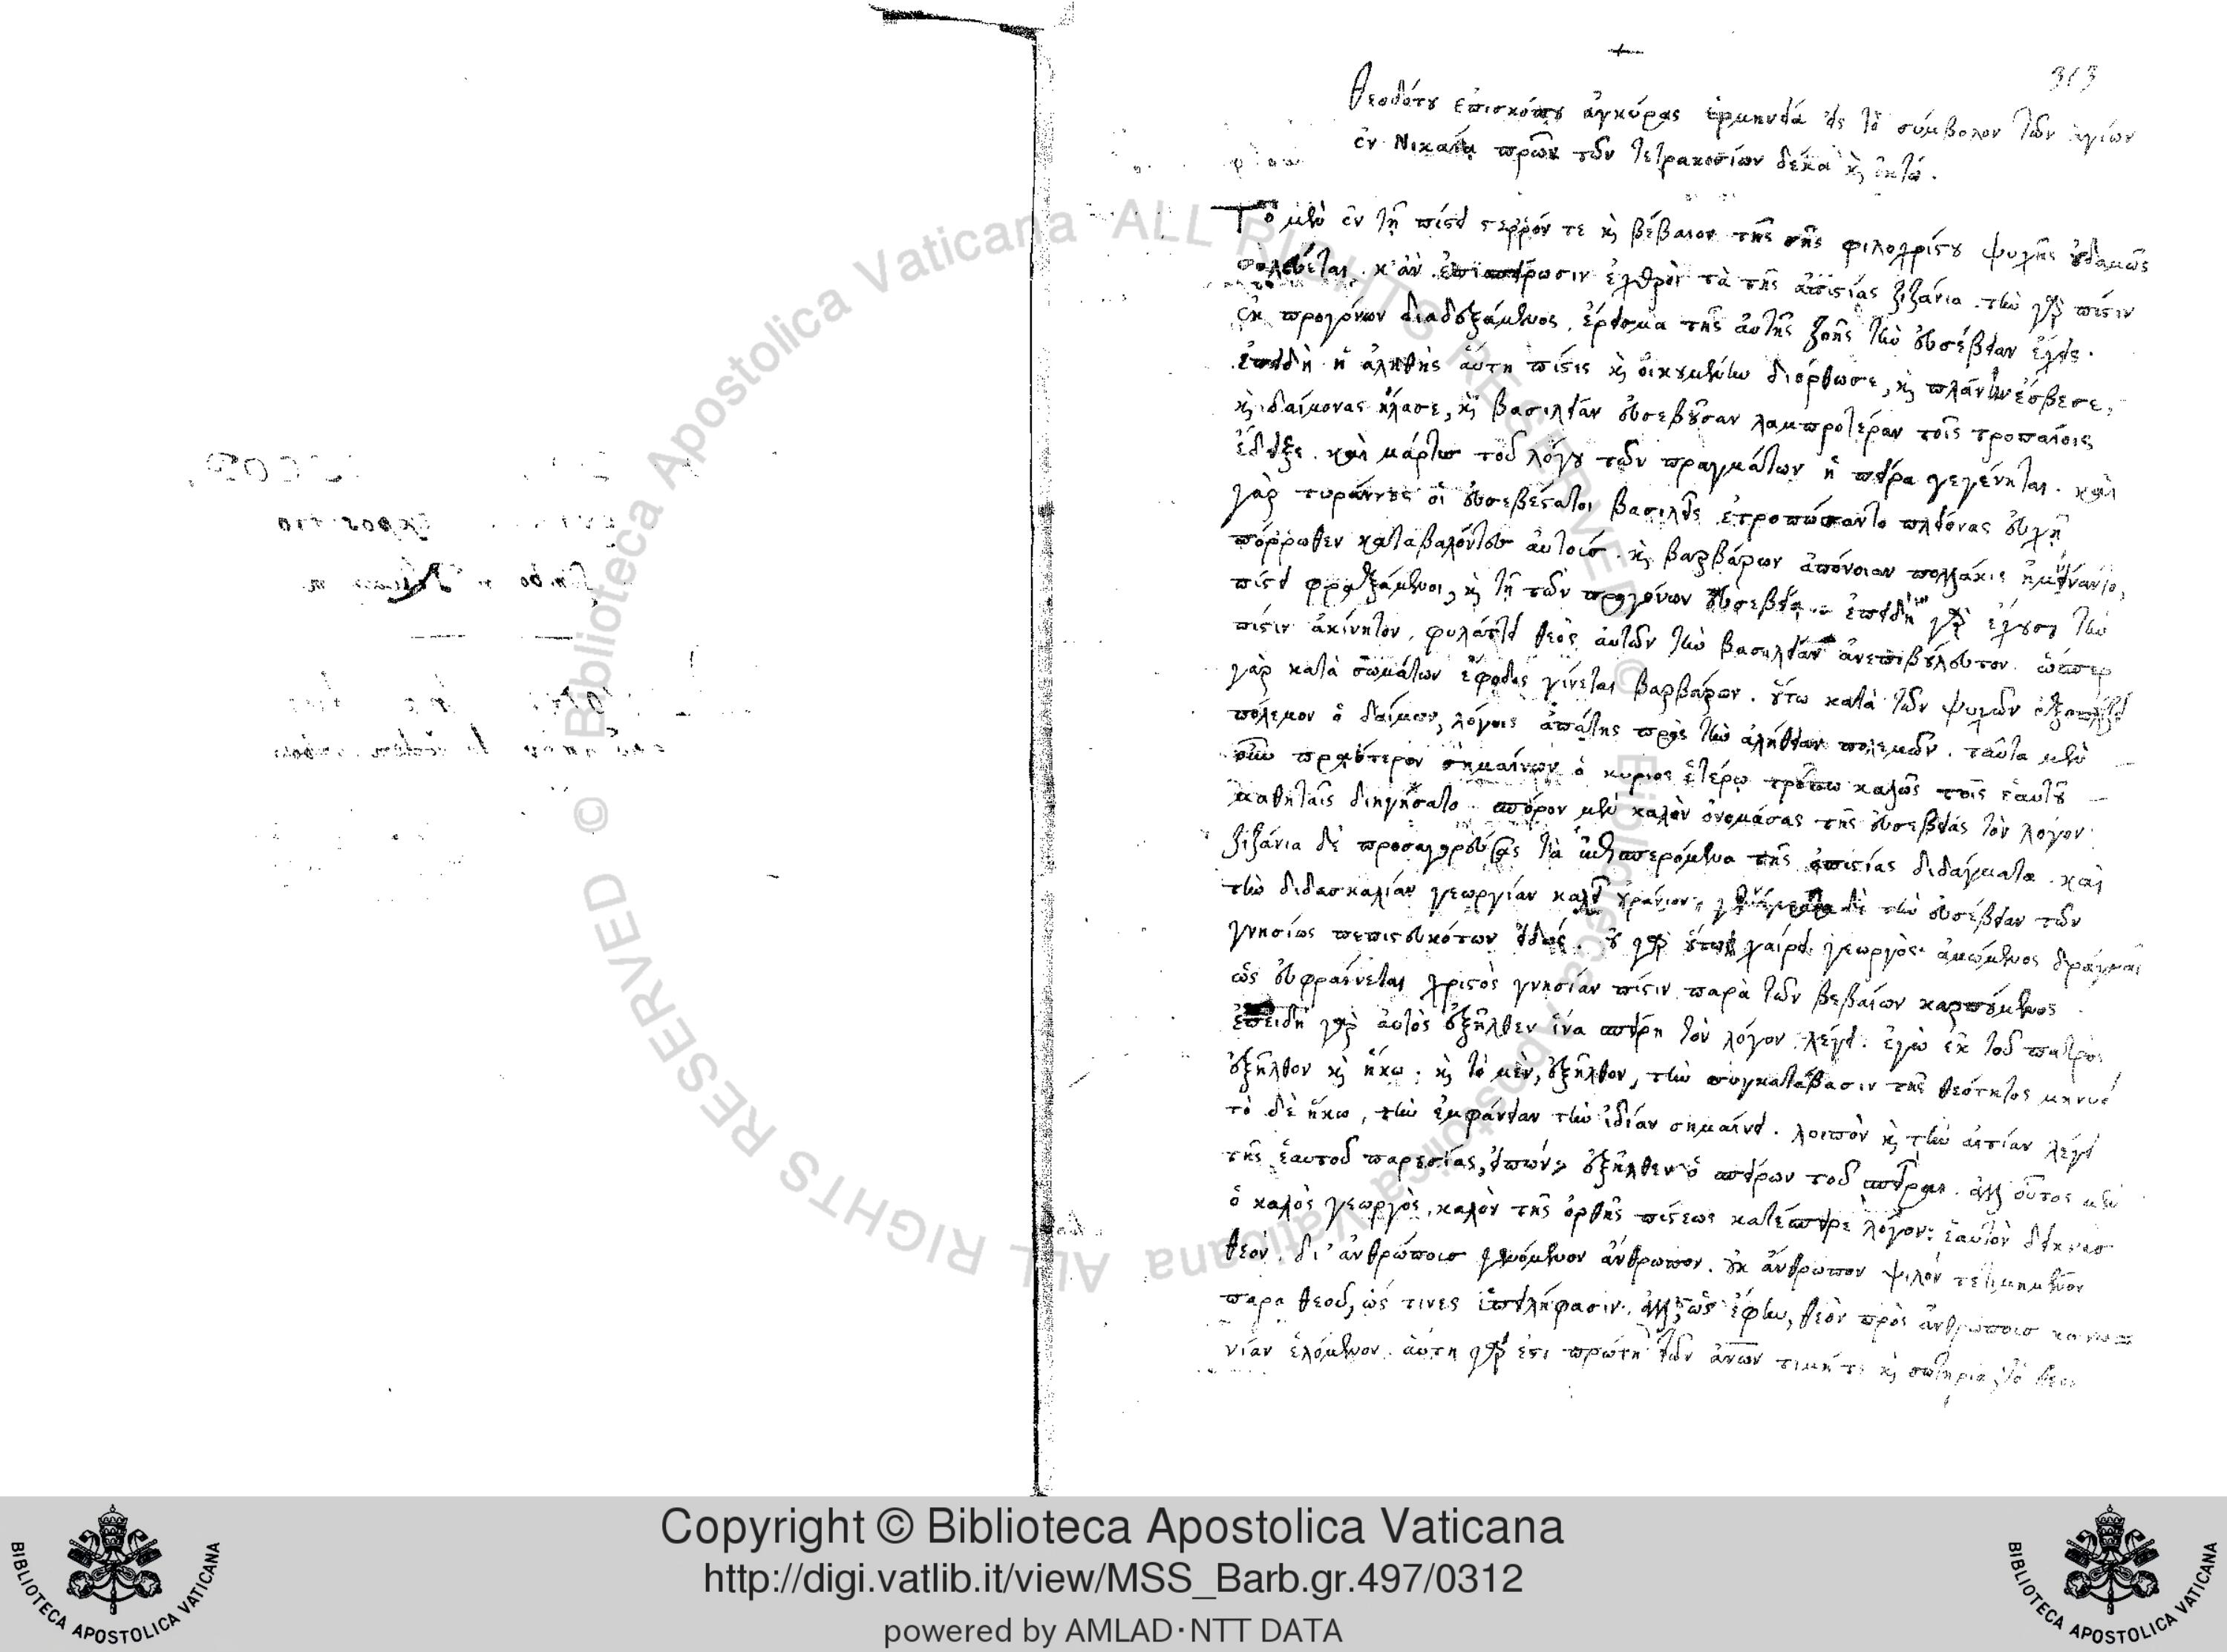 313
Θεοδότου ἐπισκόπου ἀγκύρας ἑρμηνεία εἰς τὸ σύμβολον τῶν ἁγίων
ἐν Νικαίᾳ πρῶν τῶν τετρακοσίων δέκα κ̀ ὀκτώ.
Τὸ μὲν ἐν τῇ πίστει στερρόν τε κ̀ βέβαιον τῆς σῆς φιλοχρίστου ψυχῆς οὐδαμῶς
σαλεύεται. κἂν ἐπισπείρωσιν ἐχθροὶ τὰ τῆς ἀπιστίας ζιζάνια. τὴν γὰρ πίστιν
ἐκ προγόνων διαδεξάμενος, ἔρεισμα τῆς αὐτῆς ζωῆς τὴν εὐσέβειαν ἔχεις.
ἐπειδὴ ἡ ἀληθὴς αὕτη πίστις κ̀ οἰκουμένην διόρθωσε, κ̀ πλάνην ἔσβεσε,
κ̀ δαίμονας ἤλασε, κ̀ βασιλείαν εὐσεβοῦσαν λαμπροτέραν τοῖς τροπαίοις
ἔδειξε. καὶ μάρτυς τοῦ λόγου τῶν πραγμάτων ἡ πεῖρα γεγένηται. καὶ
γὰρ τυράννους οἱ εὐσεβέστατοι βασιλεῖς ἐτροπώσαντο πλείονας εὐχῇ
πόρρωθεν καταβαλόντες αὐτοὺς. κ̀ βαρβάρων ἀπόνοιαν πολλάκις ἠμύναντο,
πίστει φραξάμενοι, κ̀ τῇ τῶν προγόνων εὐσεβείᾳ. ἐπειδὴ γὰρ ἔχουσι τὴν
πίστιν ἀκίνητον, φυλάττει θεὸς αὐτῶν τὴν βασιλείαν ἀνεπιβούλευτον. ὥσπερ
γὰρ κατὰ σωμάτων ἔφοδος γίνεται βαρβάρων. οὕτω κατὰ τῶν ψυχῶν ἐξοπλίζει
πόλεμον ὁ δαίμων, λόγοις ἀπάτης πρὸς τὴν ἀλήθειαν πολεμῶν. ταῦτα μὲν
οὖν πραότερον σημαίνων ὁ κύριος ἑτέρῳ τρόπῳ καλῶς τοῖς ἑαυτοῦ
μαθηταῖς διηγήσατο. σπόρον μὲν καλὸν ὀνομάσας τῆς εὐσεβείας τὸν λόγον.
ζιζάνια δὲ προσαγορεύσας τὰ ἐπισπερόμενα τῆς ἀπιστίας διδάγματα. καὶ
τὴν διδασκαλίαν γεωργίαν καλεῖ οὐράνιον, δὲ τὴν εὐσέβειαν τῶν
γνησίως πεπιστευκότων εἰδώς. οὐ γὰρ οὕτω χαίρει γεωργὸς ἀμώμενος δράγματα
ὡς εὐφραίνεται χριστὸς γνησίαν πίστιν παρὰ τῶν βεβαίων καρπούμενος.
ἐπειδὴ γὰρ αὐτὸς ἐξῆλθεν ἵνα σπείρῃ τὸν λόγον λέγει. ἐγὼ ἐκ τοῦ πατρὸς
ἐξῆλθον κ̀ ἥκω. κ̀ τὸ μὲν, ἐξῆλθον, τὴν συγκατάβασιν τῆς θεότητος μηνύει
τὸ δὲ ἥκω, τὴν ἐμφάνειαν τὴν ἰδίαν σημαίνει. λοιπὸν κ̀ τὴν αἰτίαν λέγει
τῆς ἑαυτοῦ παρουσίας, εἰπών, ἐξῆλθεν ὁ σπείρων τοῦ σπεῖραι. ἀλλ' οὗτος μὲν
ὁ καλὸς γεωργὸς, καλὸν τῆς ὀρθῆς πίστεως κατέσπειρε λόγον, ἑαυτὸν δεικνὺς
θεὸν. δι' ἀνθρώπους γενόμενον ἄνθρωπον. οὐκ ἄνθρωπον ψιλὸν τετιμημένον
παρα θεοῦ, ὥς τινες ὑπειλήφασιν. ἀλλ' ὡς ἔφην, θεὸν πρὸς ἀνθρώπους κοινω-
νίαν ἑλόμενον. αὕτη γὰρ ἐστι πρώτη τῶν ἀνων τιμή τε κ̀ σωτηρία, τὸ θεον
Copyright © Biblioteca Apostolica Vaticana
http://digi.vatlib.it/view/MSS_Barb.gr.497/0312
powered by AMLAD·NTT DATA
BIBLIOTECA APOSTOLICA VATICANA
BIBLIOTECA APOSTOLICA VATICANA
© Biblioteca Apostolica Vaticana ALL RIGHTS RESERVED
© Biblioteca Apostolica Vaticana ALL RIGHTS RESERVED